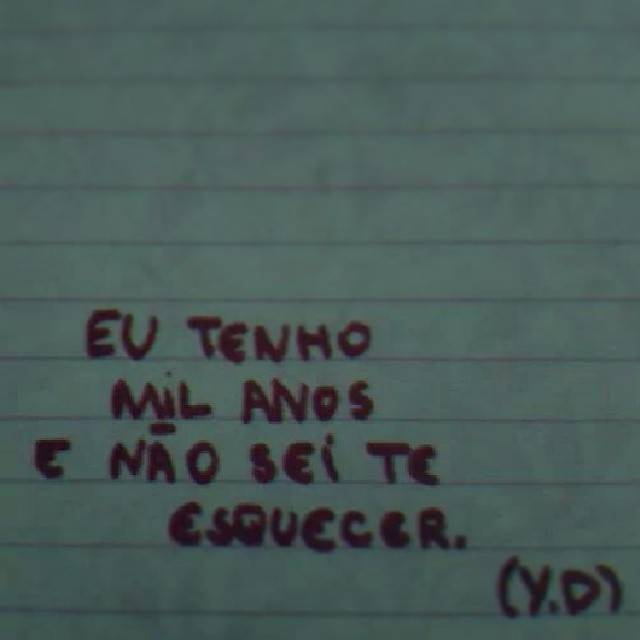 EU TENHO
MiL ANOS
E NÃO SEi TE
ESQUECER.
(Y.D)